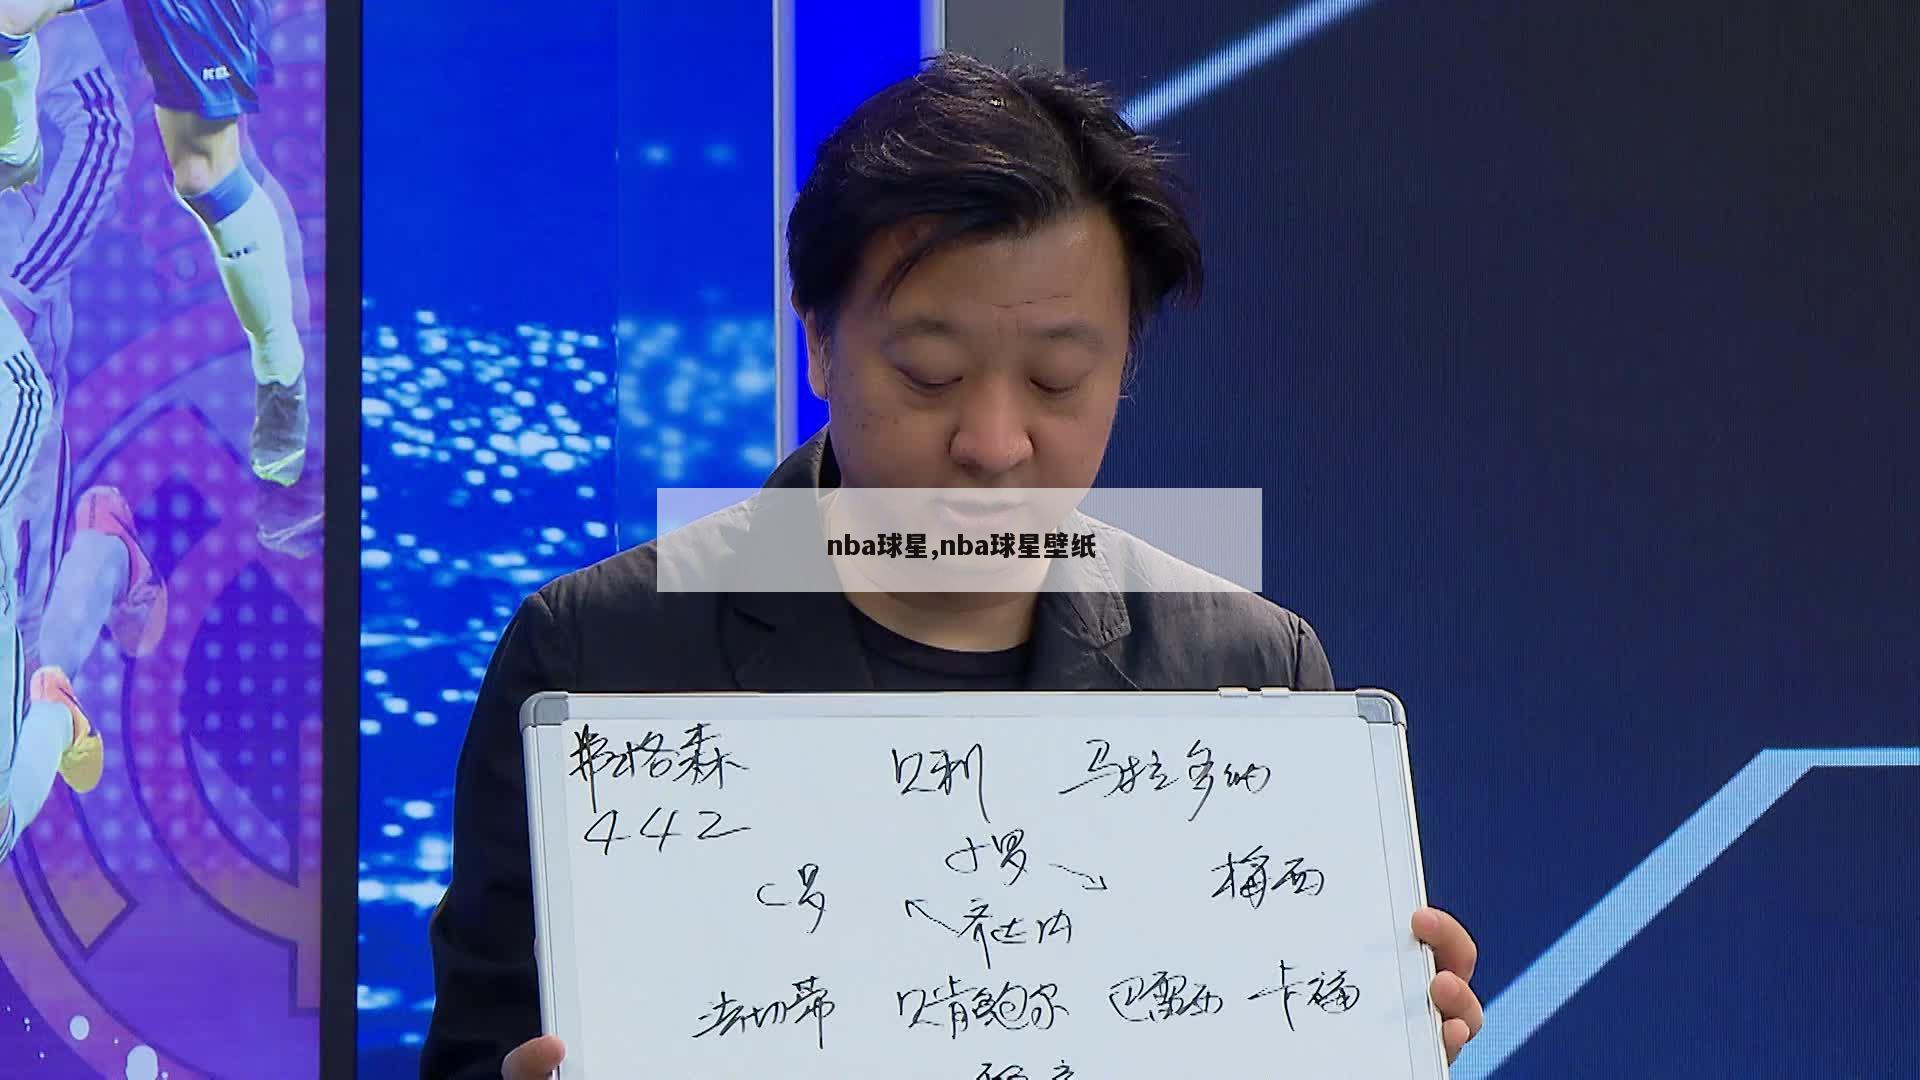 nba球星,nba球星壁纸
弗格森 贝利 马拉多纳
442
小罗
C罗 梅西
齐达内
法切蒂 贝肯鲍尔 巴雷西 卡福